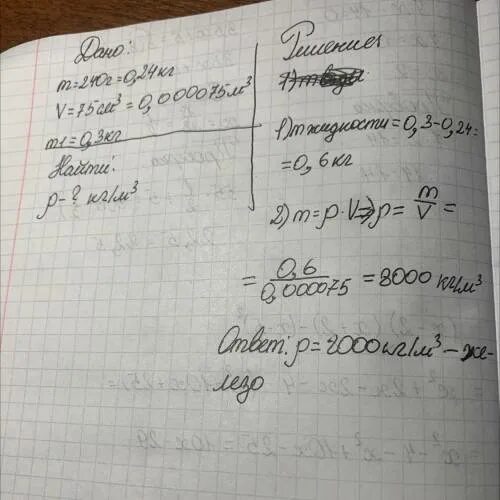 Дано:
m=240г=0,24кг
V=75см³=0,000075м³
m1=0,3кг
Найти:
ρ-? кг/м³
Решение
1)
1) m жидкости=0,3-0,24=
=0,6кг
2) m=ρ·V⇒ρ= m/V =
= 0,6/0,000075 =8000 кг/м³
Ответ: ρ=8000кг/м³-же-
лезо